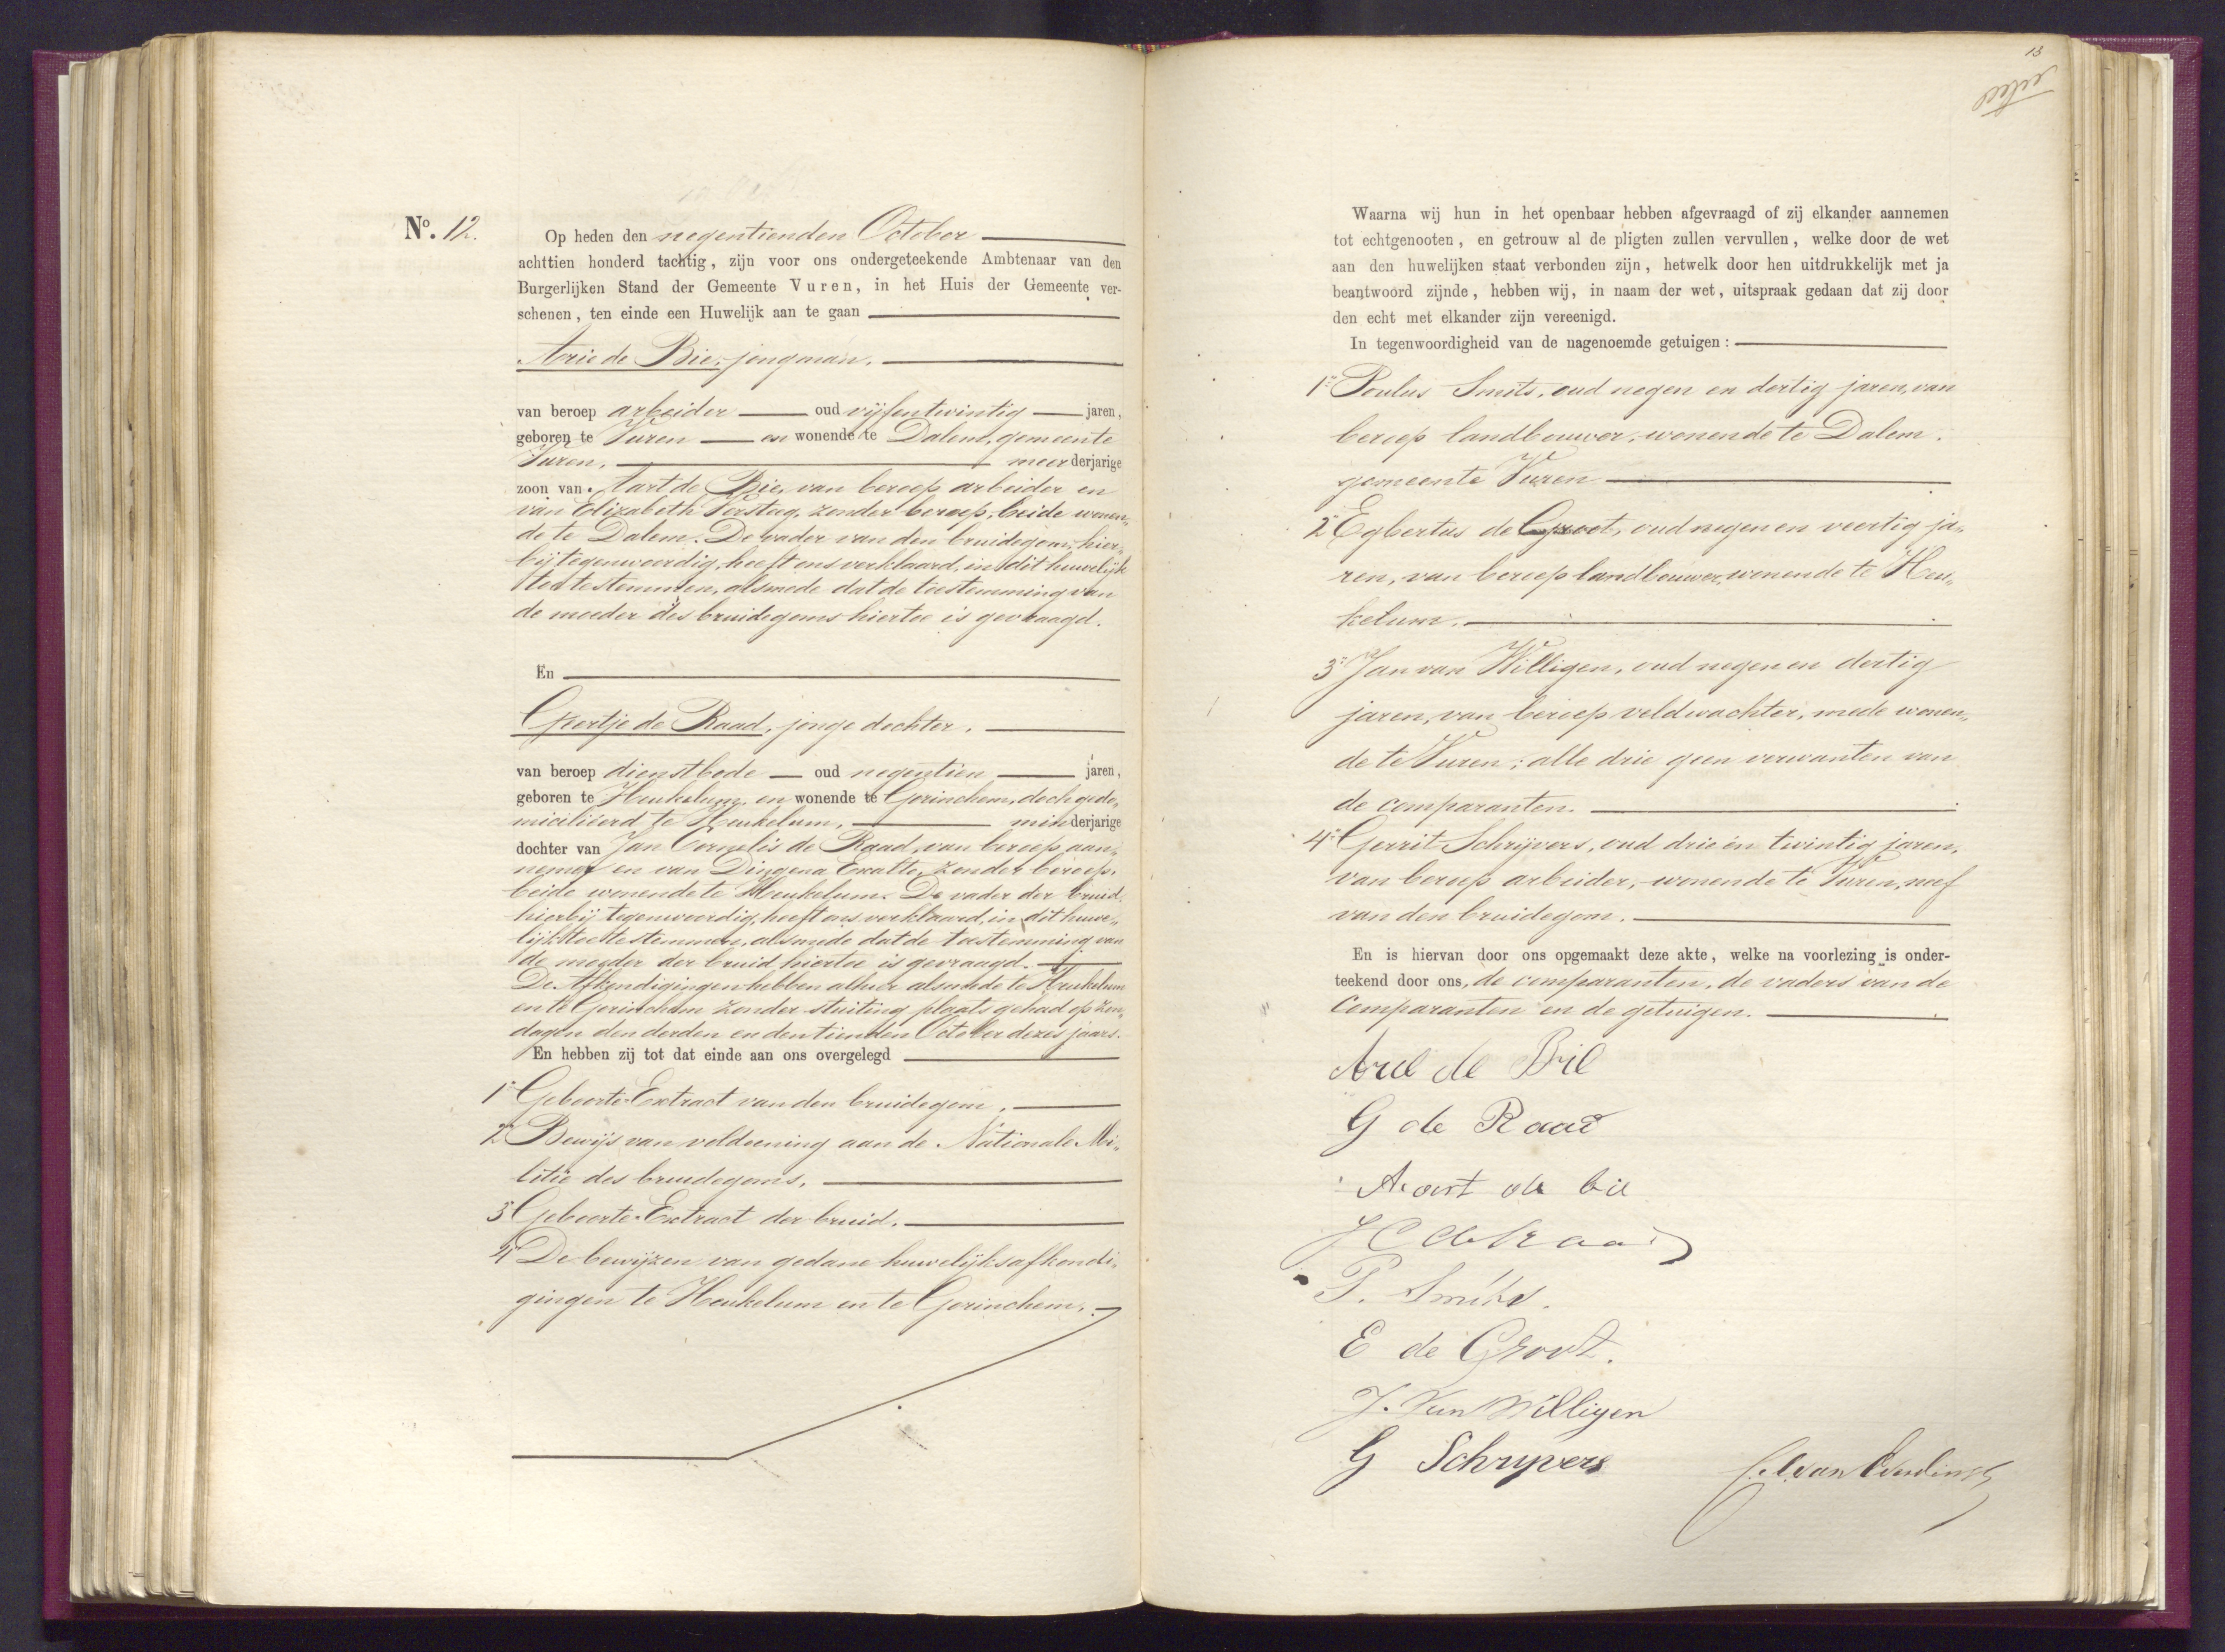 No. 12.
Op heden den negentienden October
achttien honderd tachtig, zijn voor ons ondergeteekende Ambtenaar van den
Burgerlijken Stand der Gemeente Vuren, in het Huis der Gemeente ver-
schenen, ten einde een Huwelijk aan te gaan
Arie de Bie, jongman.
van beroep arbeider oud vijfentwintig jaren,
geboren te Vuren en wonende te Dalem, gemeente
Vuren, meerderjarige
zoon van Aart de Bie, van beroep arbeider en
van Elizabeth Versteeg, zonder beroep, beide wonen„
de te Dalem. De vader van den bruidegom, hier„
bij tegenwoordig, heeft ons verklaard, in dit huwelijk
toe te stemmen, alsmede dat de toestemming van
de moeder des bruidegoms hiertoe is gevraagd.
En
Geertje de Raad, jonge dochter.
van beroep dienstbode oud negentien jaren,
geboren te Heukelum, en wonende te Gorinchem, doch gedo„
micilieerd te Heukelum, minderjarige
dochter van Jan Cornelis de Raad, van beroep aan„
nemer en van Dingena Exalto, zonder beroep,
beide wonende te Heukelum. De vader der bruid,
hierbij tegenwoordig, heeft ons verklaard, in dit huwe„
lijk toe te stemmen, alsmede dat de toestemming van
de moeder der bruid hiertoe is gevraagd.
De Afkondigingen hebben alhier alsmede te Heukelum
en te Gorinchem zonder stuiting plaats gehad op zon„
dagen den derden en den tienden October dezes jaars.
En hebben zij tot dat einde aan ons overgelegd
1° Geboorte-Extract van den bruidegom.
2° Bewijs van voldoening aan de Nationale Mi„
litie des bruidegoms.
3° Geboorte-Extract der bruid.
4° De bewijzen van gedane huwelijksafkondi„
gingen te Heukelum en te Gorinchem.
13
Waarna wij hun in het openbaar hebben afgevraagd of zij elkander aannemen
tot echtgenooten, en getrouw al de pligten zullen vervullen, welke door de wet
aan den huwelijken staat verbonden zijn, hetwelk door hen uitdrukkelijk met ja
beantwoord zijnde, hebben wij, in naam der wet, uitspraak gedaan dat zij door
den echt met elkander zijn vereenigd.
In tegenwoordigheid van de nagenoemde getuigen:
1° Poulus Smits, oud negen en dertig jaren, van
beroep landbouwer, wonende te Dalem.
gemeente Vuren
2° Egbertus de Groot, oud negen en veertig ja„
ren, van beroep landbouwer, wonende te Heu„
kelum.
3° Jan van Willigen, oud negen en dertig
jaren, van beroep veldwachter, mede wonen„
de te Vuren; alle drie geen verwanten van
de comparanten.
4° Gerrit Schrijvers, oud drie en twintig jaren,
van beroep arbeider, wonende te Vuren, neef
van den bruidegom.
En is hiervan door ons opgemaakt deze akte, welke na voorlezing is onder-
teekend door ons, de comparanten, de vaders van de
Comparanten en de getuigen.
Arie de Bie
G de Raad
Aart de bie
J C de Raad
P. Smits.
E de Groot.
J. van Willigen
G Schrijvers